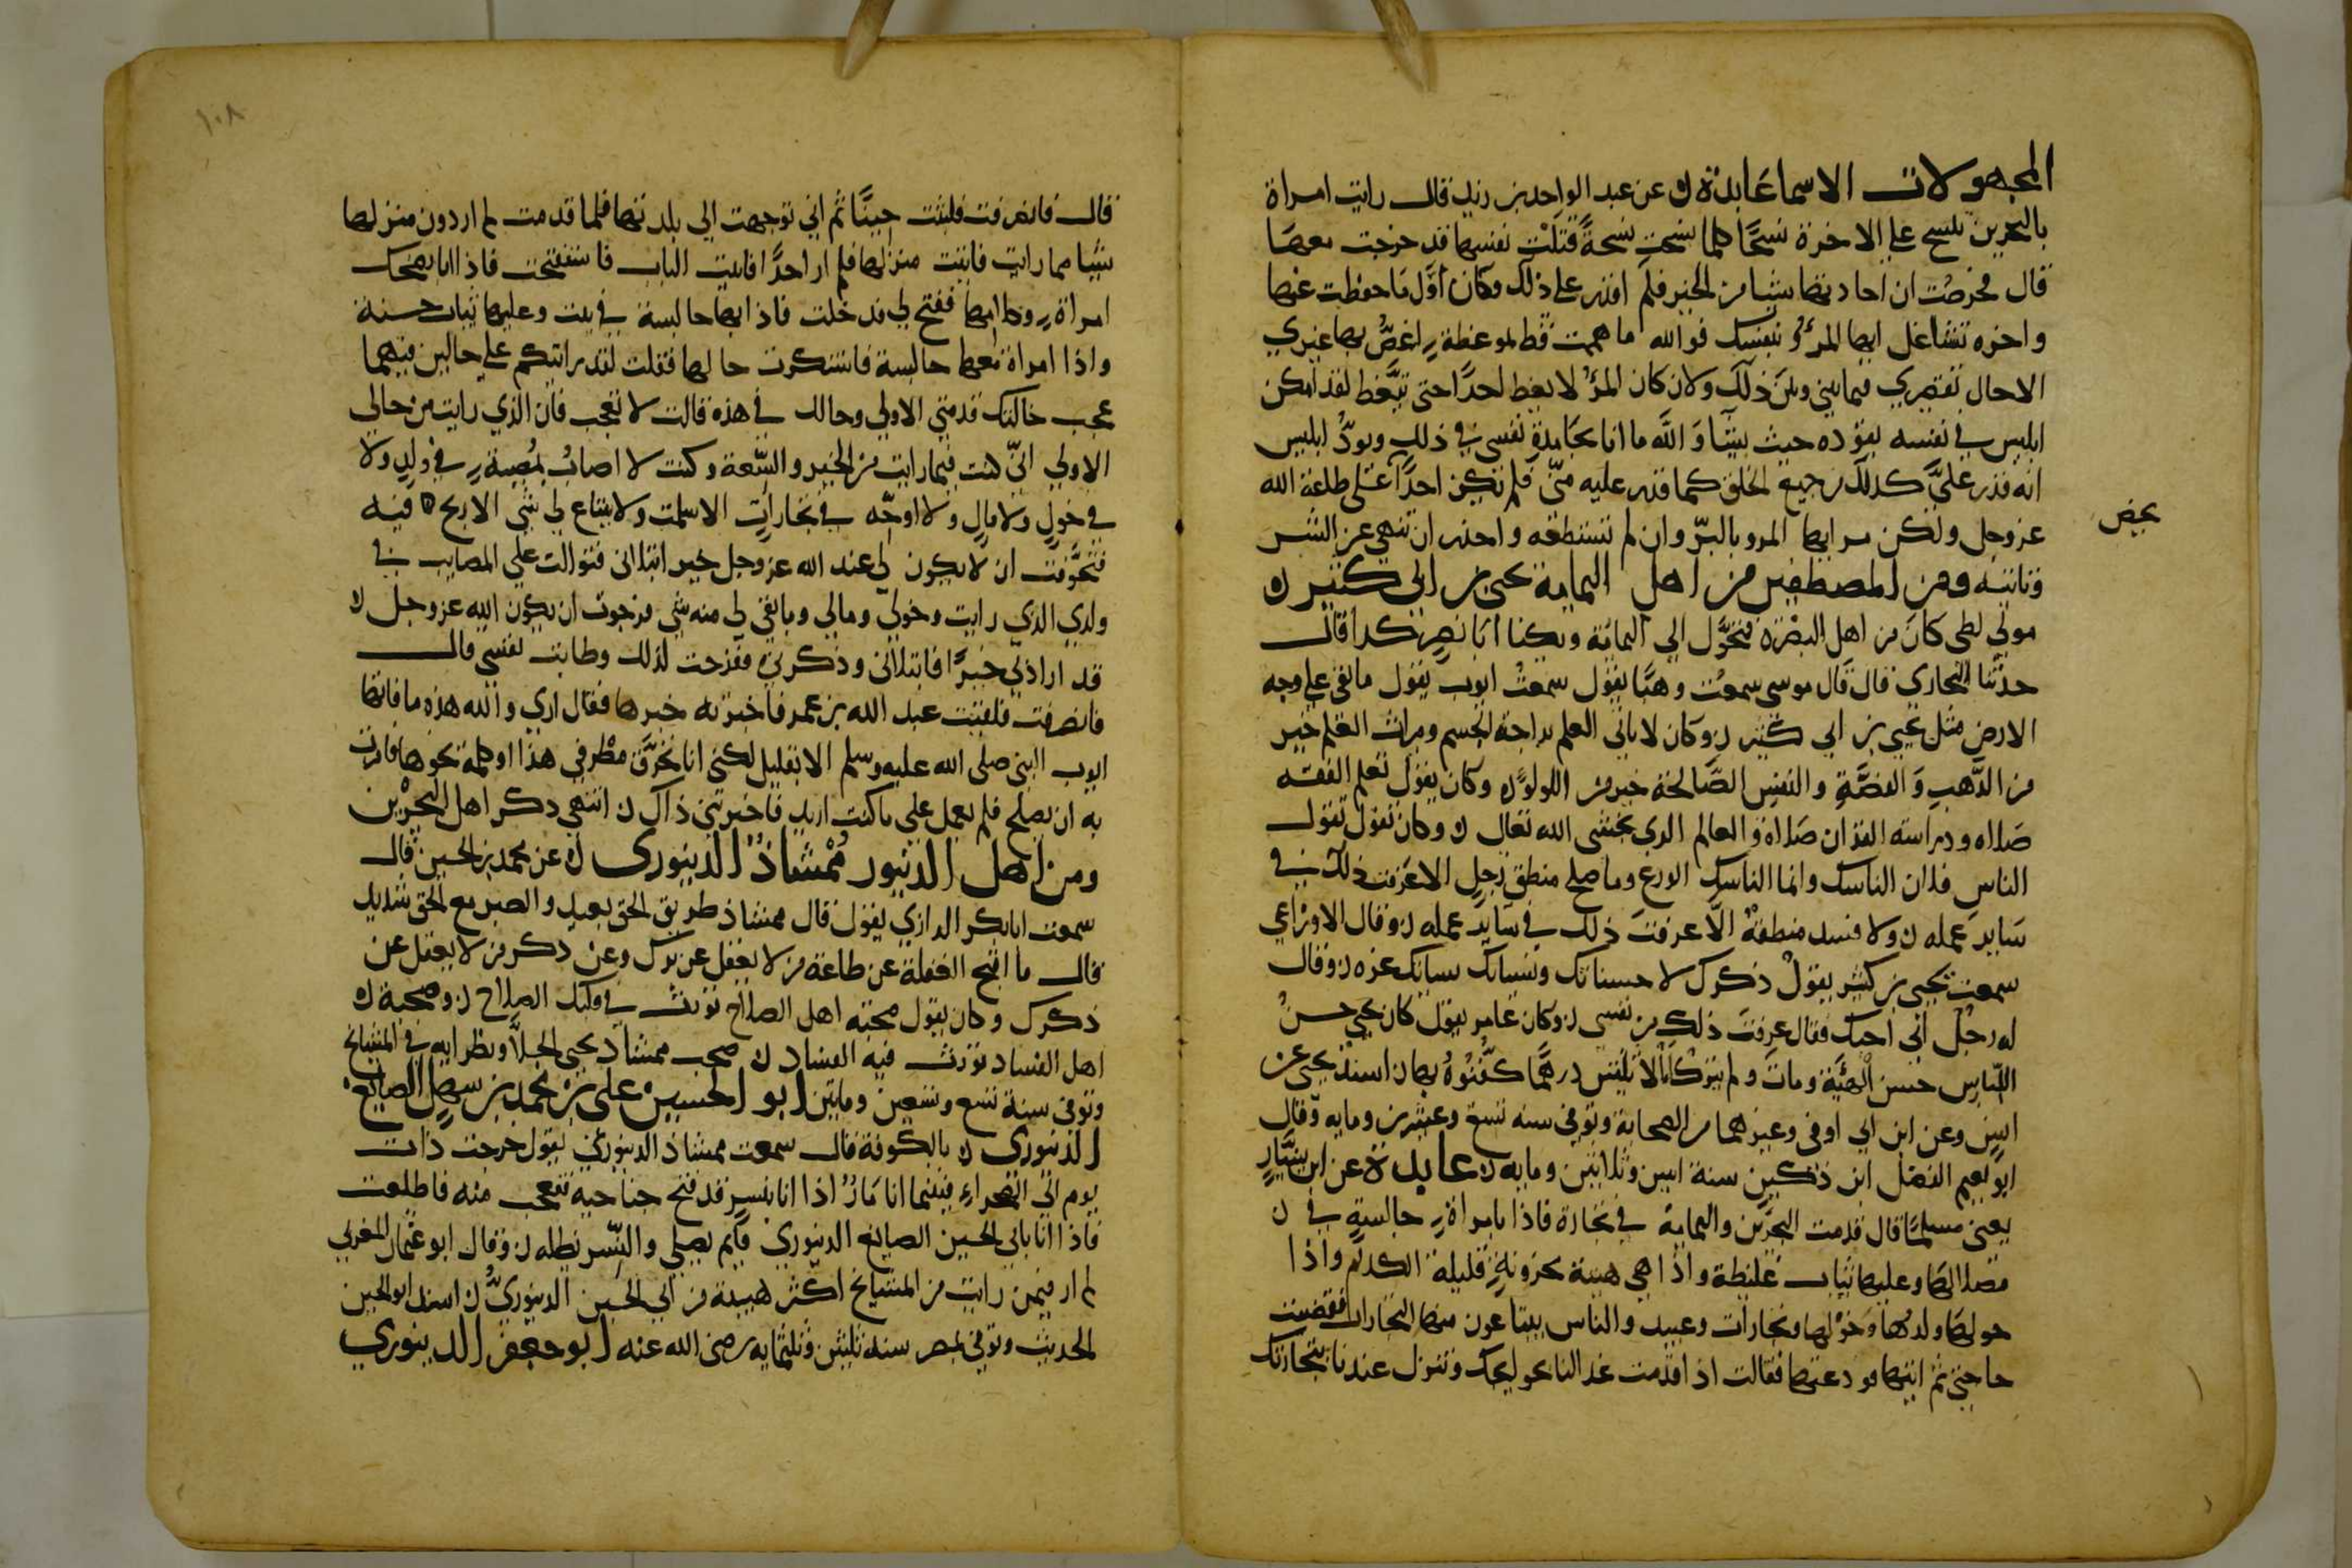 المجهولات الاسما عابدة ن عن عبد الواحد بن زيد قال رايت امراة
بالبحرين تشح على الاخرة شحًّا كلما شحت شحةً قتلت نفسها قد خرجت معها
قال فحرصت ان احادثها شيا من الخير فلم اقدر على ذلك وكان اول ما حفظت عنها
واخره تشاغل ايها المرؤ بنفسك فوالله ما هممت قط لموعظة اخص بها غيري
الا حال تقصيري فيما بيني وبين ذلك ولان كان المرؤ لا يعظ احدًا حتى يتعظ لقد امكن
ابليس في نفسه يقوده حيث يشا والله ما انا بحامدة نفسي في ذلك وبودّ ابليس
انه قدر على كذلك جميع الخلق كما قدر عليه منّي فلم يكن احدًا على طاعة الله
عز وجل ولكن مر ايها المرو بالبرّ وان لم تستطعه واحذر ان تنهى عن الشر
وتاتيه ومن المصطفين من اهل اليمامة يحيى بن ابي كثير ن
مولى لطي كان من اهل البصرة فتحوّل الى اليمامة ويكنا ابا نصر كذا قال
حدثنا البخاري قال قال موسى سمعت وهبًا يقول سمعت ايوب يقول ما بقي على وجه
الارض مثل يحيى بن ابي كثير ن وكان لا ياتي العلم براحة الجسم وميراث العلم خير
من الذهب والفضة والنفس الصالحة خير من اللولو ن وكان يقول تعلم الفقه
صلاه ودراسته القران صلاه والعالم الذي يخشى الله تعالى ن وكان يقول يقول
الناس فلان الناسك وانما الناسك الورع وما صلح منطق رجل الا عرفت ذلك في
ساير عمله ن ولا فسد منطقه الا عرفت ذلك في ساير عمله ن وقال الاوزاعي
سمعت يحيى بن كثير يقول ذكرك لا حسناتك ونسيانك سياتك غره ن وقال
له رجل اني احبك فقال عرفت ذلك من نفسي ن وكان عامر يقول كان يحيى حسن
اللباس حسن الهئية ومات ولم يترك الا ثلثين درهمًا كفنوه بها ن اسند يحيى عن
انس وعن ابن ابي اوفى وغيرهما من الصحابة وتوفي سنه تسع وعشرين ومايه وقال
ابو نعيم الفضل ابن دكين سنة اثنين وثلاثين ومايه ن عابدة عن ابن يسار
يعني مسلمًا قال قدمت البحرين واليمامة في تجارة فاذا بامراة جالسة في ن
مصلاها وعليها ثياب غليظة واذا هي هيبة محزونة قليلة الكلام واذا
حولها ولدها وخولها وتجارات وعبيد والناس يبتاعون منها التجارات فقضيت
حاجتي ثم اتيتها فودعتها فقالت اذا قدمت غدا لنا بحوايجك وتنزل عندنا بتجارتك
بعض
١٠٨
قال فانصرفت فلبثت حينًا ثم اني توجهت الى بلدتها فلما قدمت لم ار دون منزلها
شيا مما رايت فاتيت منزلها فلم ار احدًا فاتيت الباب فاستفتحت فاذا انا بضحك
امراة وكلامها ففتح لي فدخلت فاذا بها جالسة في بيت وعليها ثياب حسنة
واذا امراة معها جالسة فاستنكرت حالها فقلت لقد رايتكم على حالين فيهما
عجب حالتك قدمتي الاولى وحالك في هذه قالت لا تعجب فان الذي رايت من حالي
الاولى انّي كنت فيما رايت من الخير والسّعة وكنت لا اصاب بمصيبة في ولد ولا
في خول ولا مال ولا اوجّه في تجارات الا سلمت ولا يبتاع لي شي الا ربح فيه
فتخوفت ان لا يكون لي عند الله عز وجل خير ابتلاني فتوالت علي المصايب في
ولدي الذي رايت وخولي ومالي وما بقي لي منه شي فرجوت ان يكون الله عز وجل ن
قد اراد بي خيرًا فابتلاني وذكرني ففرحت لذلك وطابت نفسي قال
فانصرفت فلقيت عبد الله بن عمر فاخبرته خبرها فقال اري والله هذه ما فاتها
ايوب النبي صلى الله عليه وسلم الا بقليل لكني انا تخرّق مطرفي هذا او كلمة نحوها فامرت
به ان يصلح فلم يعمل على ما كنت اريد فاحزنني ذاك ن انتهى ذكر اهل البحرين
ومن اهل الدنيور ممشاذ الدينوري ن عن محمد بن الحسين قال
سمعت ابا بكر الرازي يقول قال ممشاذ طريق الحق بعيد والصبر مع الحق شديد
قال ما اقبح الغفلة عن طاعة من لا يغفل عن برك وعن ذكر من لا يغفل عن
ذكرك وكان يقول صحبة اهل الصلاح تورث في قلبك الصلاح ن وصحبة ن
اهل الفساد تورث فيه الفساد ن صحب ممشاذ يحيى الجلا ونظرايه في المشايخ
وتوفي سنة تسع وتسعين ومايتين ابو الحسين علي بن محمد بن سهل الصايغ
الدنيوري ن بالكوفة قال سمعت ممشاذ الدنيوري يقول خرجت ذات
يوم الى الصحراء فبينما انا مار اذا انا بنسر قد فتح جناحيه فتعجب منه فاطلعت
فاذا انا بابي الحسين الصايغ الدنيوري قايم يصلي والنسر يظله ن وقال ابو عثمان المغربي
لم ار فيمن رايت من المشايخ اكثر هيبة من ابي الحسين الدينوري ن اسند ابو الحسين
الحديث وتوفي بمصر سنه ثلثين وثلثمايه رضي الله عنه ابو جعفر الدينوري